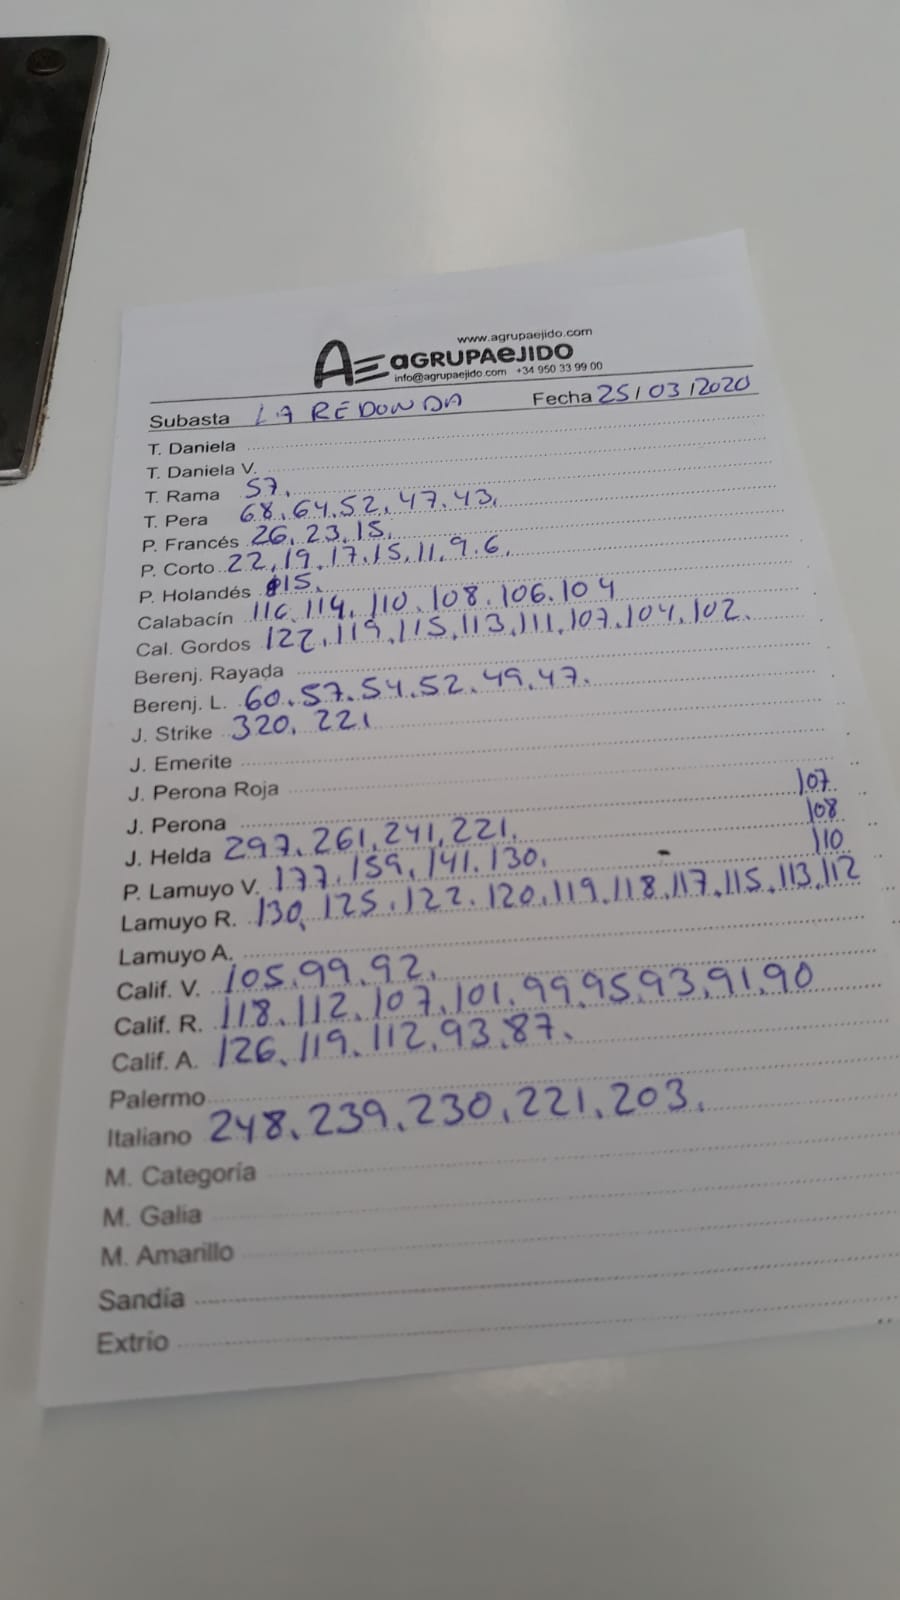 www.agrupaejido.com
AE aGRUPAeJIDO
info@agrupaejido.com +34 950 33 99 00
Subasta LA REDONDA Fecha 25/03/2020
T. Daniela
T. Daniela V.
T. Rama 57.
T. Pera 68. 64. 52. 47. 43.
P. Francés 26. 23. 15.
P. Corto 22. 19. 17. 15. 11. 9. 6.
P. Holandés 15.
Calabacín 116. 114. 110. 108. 106. 104
Cal. Gordos 122. 119. 115. 113. 111. 107. 104. 102.
Berenj. Rayada
Berenj. L. 60. 57. 54. 52. 49. 47.
J. Strike 320. 221
J. Emerite
J. Perona Roja
J. Perona 107
J. Helda 297. 261. 241. 221. 108
P. Lamuyo V. 177. 159. 141. 130. 110
Lamuyo R. 130. 125. 122. 120. 119. 118. 117. 115. 113. 112
Lamuyo A.
Calif. V. 105. 99. 92.
Calif. R. 118. 112. 107. 101. 99. 95. 93. 91. 90
Calif. A. 126. 119. 112. 93. 87.
Palermo
Italiano 248. 239. 230. 221. 203.
M. Categoría
M. Galia
M. Amarillo
Sandía
Extrio